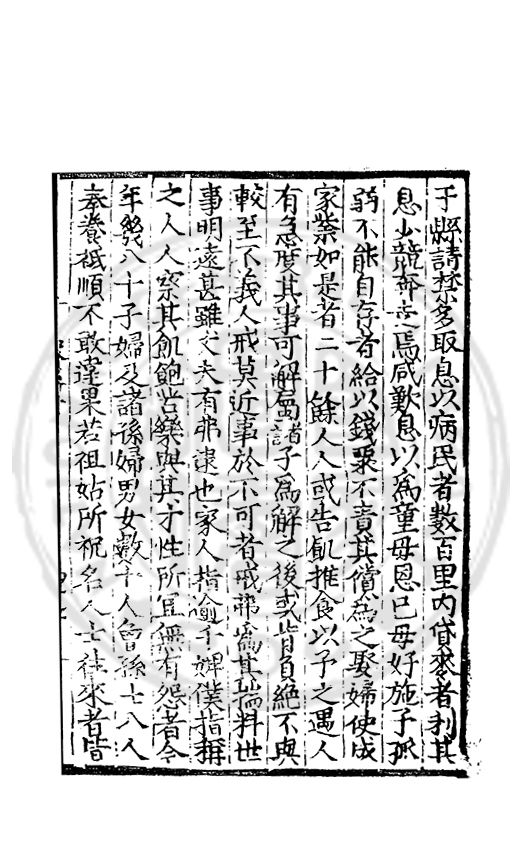 于縣請禁多取息以病民者數百里內貸來者利其
息少競奔走焉咸歎息以為童母恩已母好施予孤
弱不能自存者給以錢粟不責其償為之娶婦使成
家業如是者二十餘人人或告飢推食以予之遇人
有急度其事可解屬諸子為解之後或背負絕不與
較至不義人戒莫近事於不可者戒弗為其揣料世
事明遠甚雖丈夫有弗逮也家人指逾千婢僕指稱
之人人察其飢飽苦樂與其才性所宜無有怨者今
年幾八十子婦及諸孫婦男女數十人曾孫七八人
奉養祗順不敢違果若祖姑所祝名人士往來者皆